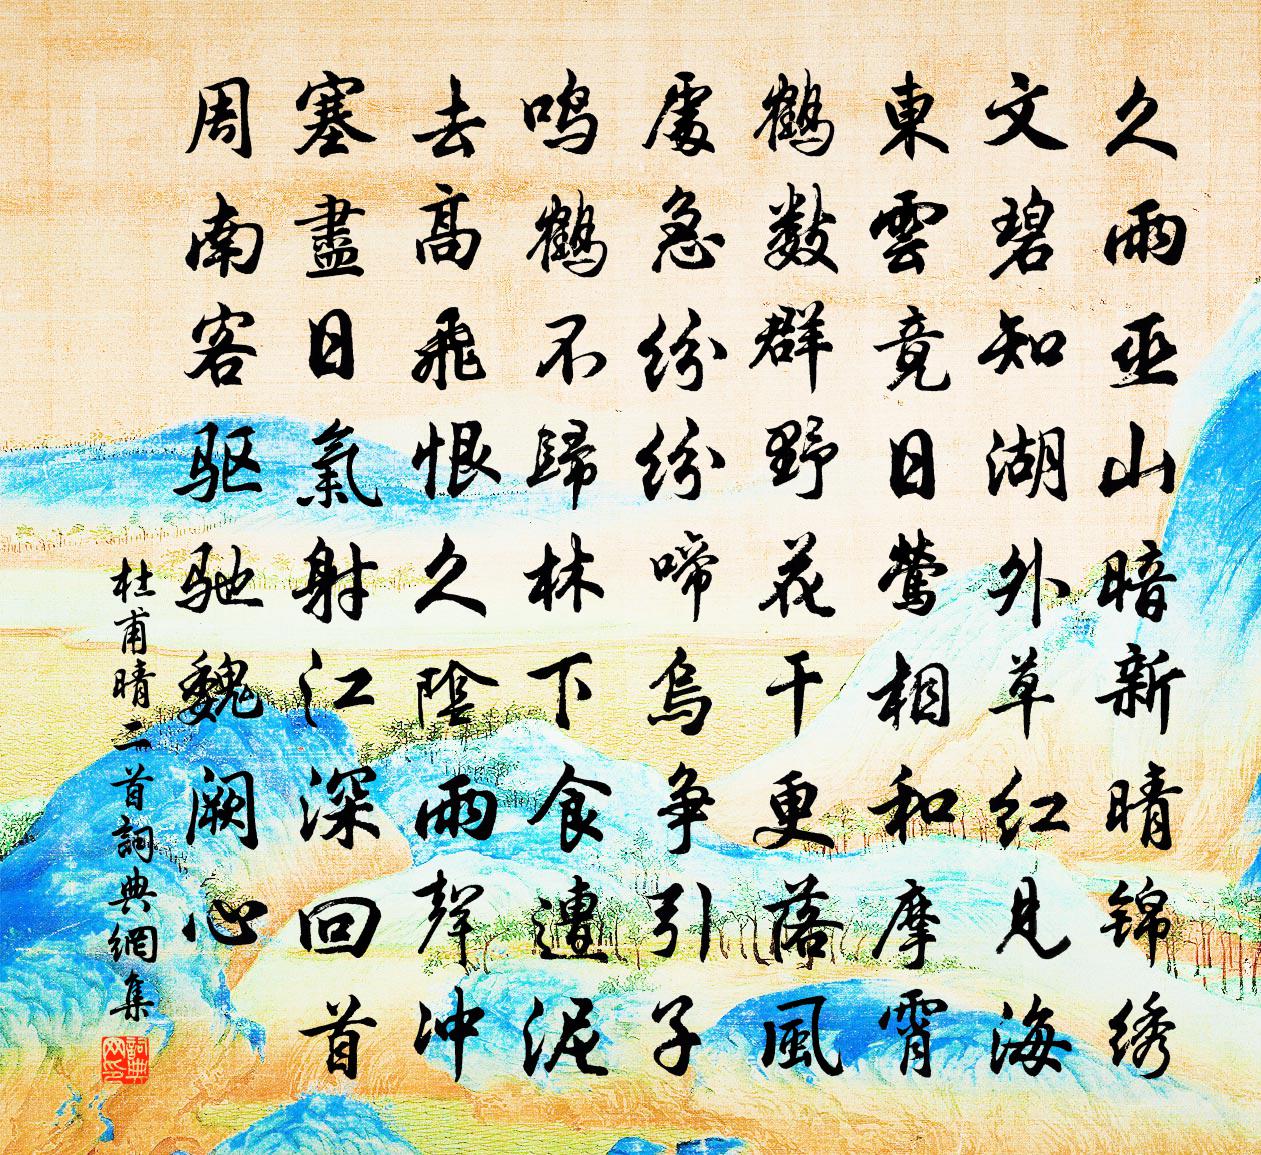 久雨巫山暗新晴锦绣
文碧知湖外草红见海
東雲竟日莺相和摩霄
鹤數群野花干更落風
處急纷纷啼烏争引子
鸣鹤不歸林下食遭泥
去高飛恨久陰雨聲冲
塞盡日氣射江深回首
周南客驱驰魏阙心
杜甫晴二首詞典網集